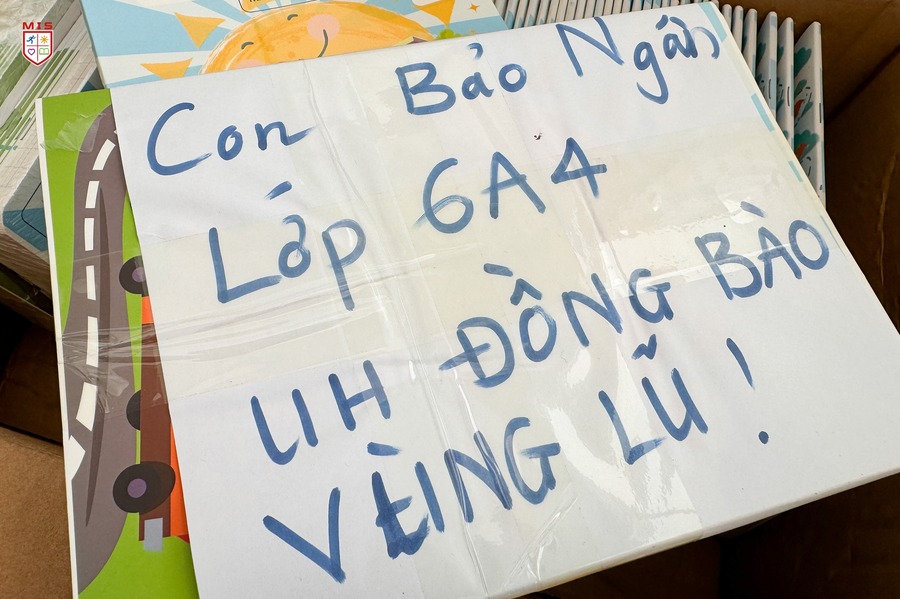 MIS
Con Bảo Ngân
Lớp 6A4
UH ĐỒNG BÀO
VÙNG LŨ !